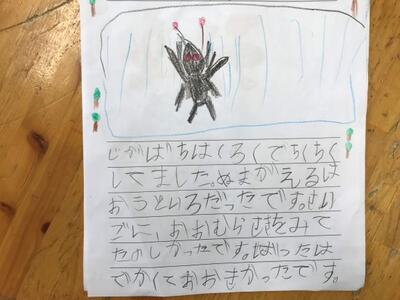 じがばちはくろくでちくちく
してました。ぬまがえるは
おうどいろだったです。さい
ごに、おおむらさきをみて
たのしかったです。ばったは
でかくておおきかったです。